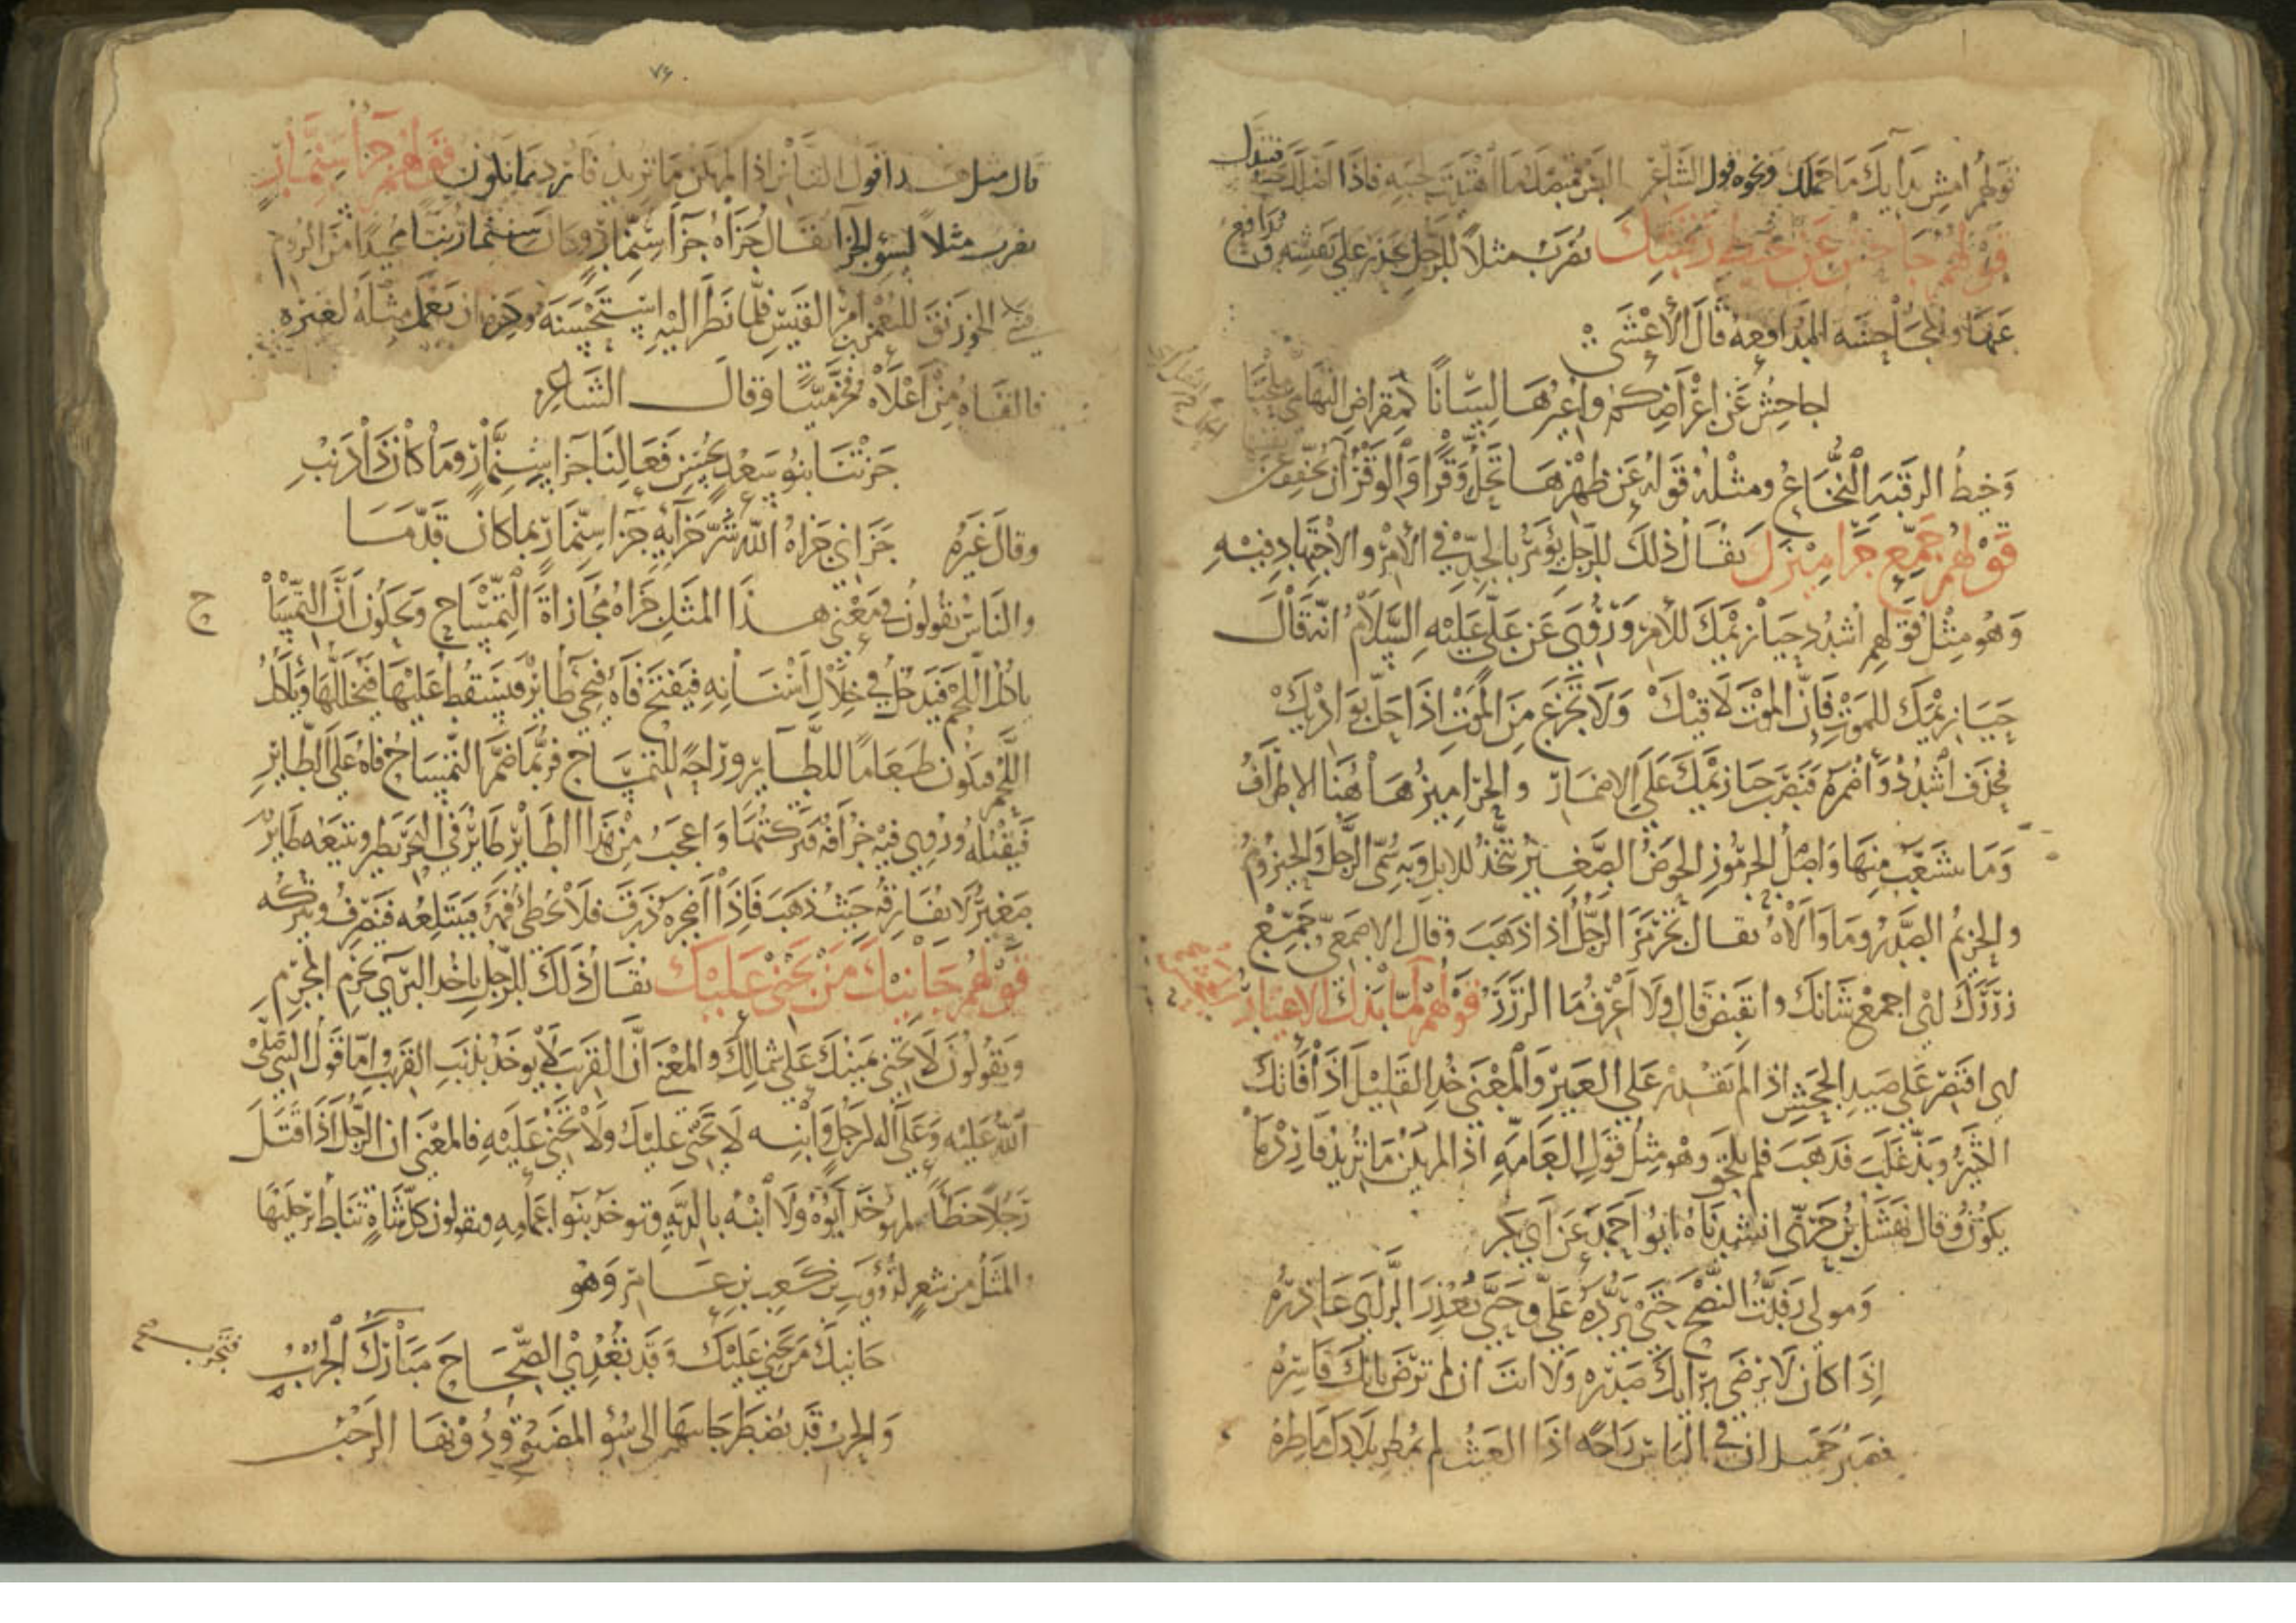 قولهم امش بدايك ما حملك ونحوه قول الشاعر
قولهم جاحش عن خيط رقبتك يضرب مثلاً للرجل يحذر على نفسه
عنها والمجاحشه المدافعه قال الأعشى
اجاحش عن اعراضكم واعيرها لساناً كمقراض
وخيط الرقبه النخاع ومثله قوله عن ظهرها تحل وقراً والوقر ان تخفف عن
قولهم جمع جراميزك يقال ذلك للرجل يؤمر بالجد في الأمر والاجتهاد فيه
وهو مثل قولهم اشدد حيازيمك للأمر وروي عن علي عليه السلام انه قال
حيازيمك للموت فإن الموت لاقيك ولا تجزع من الموت اذا حل بواديك
فحذف اشدد واضمره فنصب حيازيمك على الاضمار والجراميز هاهنا الاطراف
وما يتشعب منها واصل الجرموز الحوض الصغير يتخذ للابل وبه سمي الرجل والحيزوم
والحزيم الصدر وما والاه يقال تجرمز الرجل اذا ذهب وقال الاصمعي جمع
زرزك اي اجمع شانك وانقبض قال ولا اعرف ما الزرز قولهم لما بذك الاعيار
اي اقتصر على صيد الجحش اذا لم تقدر على العير والمعنى خذ القليل اذا فاتك
الكثير وبذ غلب قد هب فلم يلحق وهو مثل قول العامه اذا لم يكن ما تريد فارد ما
يكون وقال نهشل بن حري انشدناه ابو احمد عن ابي بكر
ومولى رفدت النصح حتى يرده علي وحتى يعذر الراي عاذره
إذا كان لا يرضى برايك صدره ولا انت ان لم ترض بانك قاسره
فصبر جميل ان في الياس راحه اذا الغيث لم يمطر بلادك ماطره
٧۶
قولهم جزا سنمار
يضرب مثلاً لسوء الجزا يقال جزاه جزآ سنمار وكان سنمار بنّا مجيداً من الروم
الخورنق للنعمن بن امرئ القيس فلما نظر اليه استحسنه وكره ان يعمل مثله لغيره
فالقاه من أعلاه فخر ميتاً وقال الشاعر
جزتنا بنو سعد بحسن فعالنا جزا سنمار وما كان ذا ذنب
وقال غيره جزاني جزاه الله شر جزايه جزا سنمار بما كان قدما
والناس يقولون في معنى هذا المثل جزاه مجازاة التمساح ويحكون أن التمسا
ح
ياكل اللحم فيدخل في خلال أسنانه فيفتح فاه فيجي طاير فيسقط عليها فيخللها وياكل
اللحم فيكون طعاماً للطاير وراحه للتمساح فربما ضم التمساح فاه على الطاير
فيقتله وروي فيه خرافه فتركتها واعجب من هذا الطاير طاير في البحر يطير ويتبعه طاير
صغير لا يفارقه حيث ذهب فإذا أضجره ذرق فلا يخطي فمه فيبتلعه فينصرف ويتركه
قولهم جانيك من يجني عليك يقال ذلك للرجل ياخذ البري بجرم المجرم
ويقولون لا تجني يمينك على شمالك والمعنى أن القريب لا يوخذ بذنب القريب واما قول النبي صلى
الله عليه وعلى آله لرجل وابنه لا يجني عليك ولا تجني عليه فالمعنى ان الرجل اذا قتل
رجلاً خطأً لم يوخذ أبوه ولا ابنه بالديه وتوخذ بنو اعمامه ويقولون كل شاة تناط برجليها
والمثل من شعر لذويب بن كعب بن عامر وهو
جانيك من يجني عليك وقد تعدي الصحاح مبارك الجرب
والحرب قد يضطر جانيها الى سو المضيق ودونها الرحب